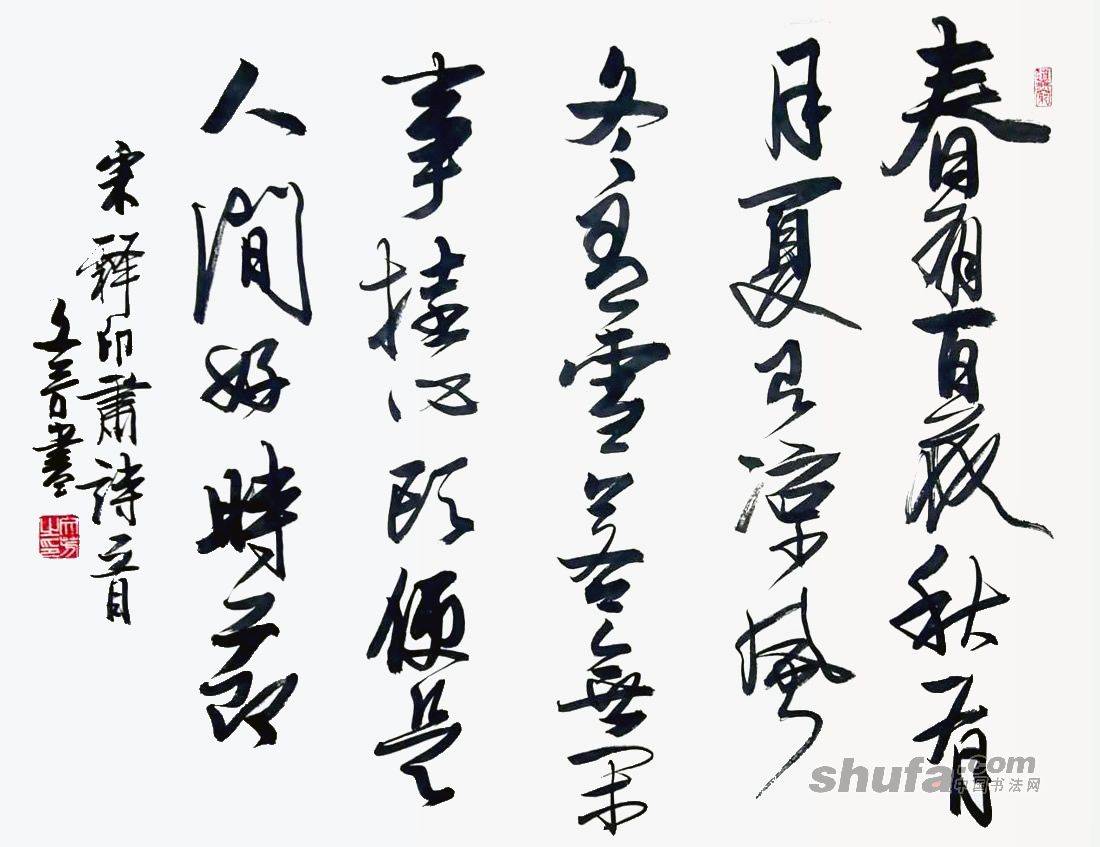 春有百花秋有
月夏有凉風
冬有雪若無閑
事挂心頭便是
人間好時節
宋釋印肅詩一首
書
shufa.com
中国书法网